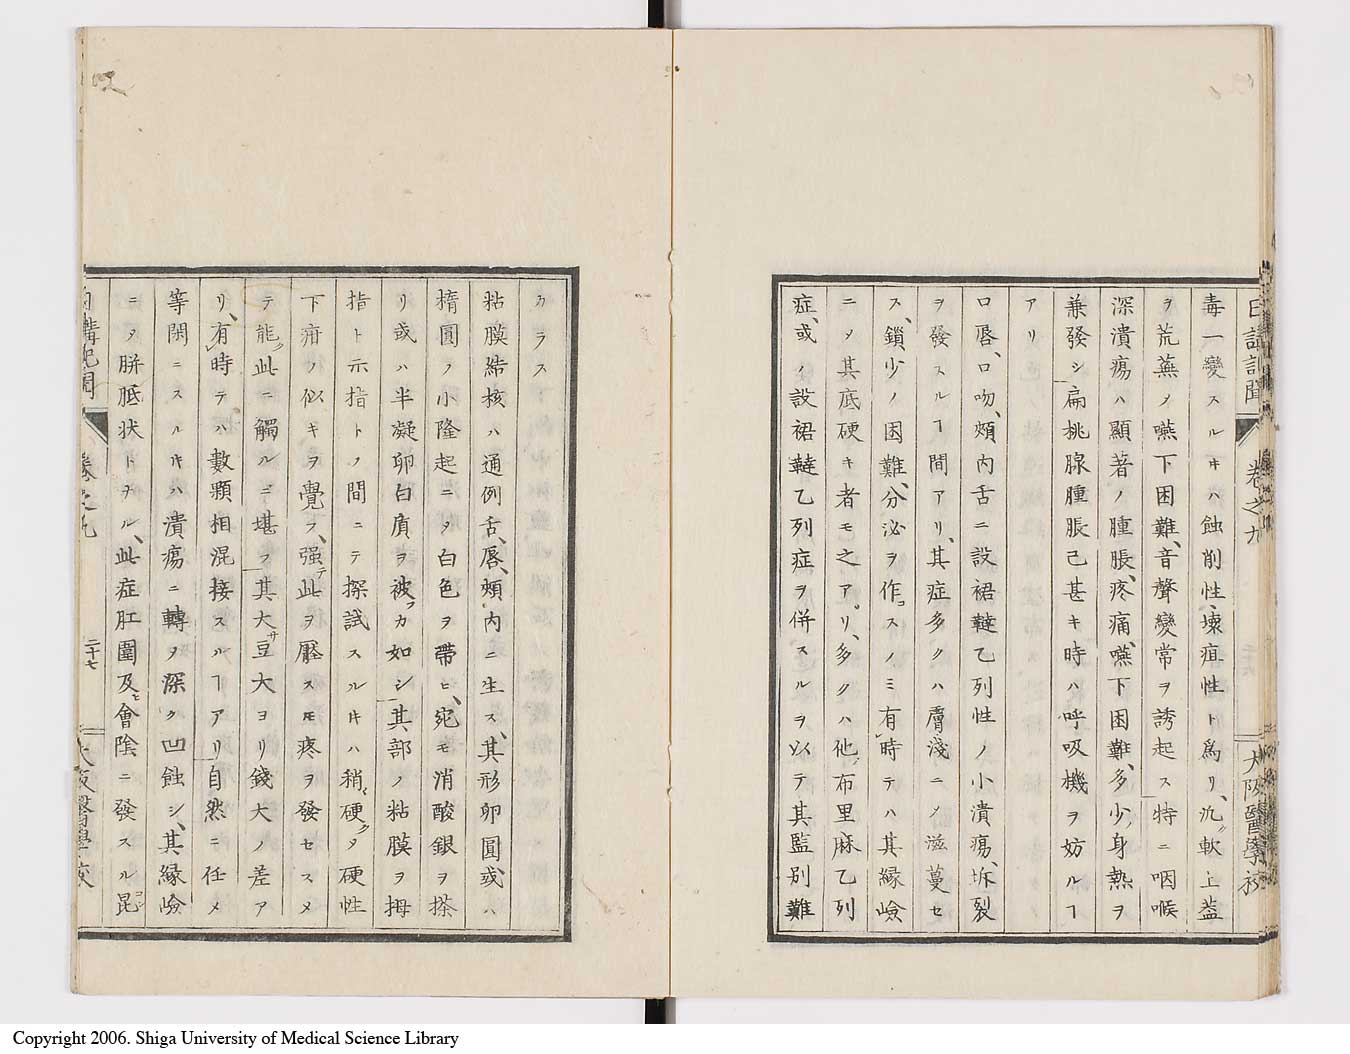 日講記聞 卷之九 大阪醫學校
毒一變スルキハ蝕削性、壊疽性ト爲リ、軟上蓋
ヲ荒蕪ノ嚥下困難、音聲變常ヲ誘起ス特ニ咽喉
深潰瘍ハ顯著ノ腫脹、疼痛、嚥下困難、多少ノ身熱ヲ
兼發シ扁桃腺腫脹已甚キ時ハ呼吸機ヲ妨ルヿ
アリ
口唇、口吻、頬内舌ニ設裙韃乙列性ノ小潰瘍、坼裂
ヲ發スルヿ間アリ、其症多クハ膚淺ニノ滋蔓セ
ス、鎖少ノ困難、分泌ヲ作スノミ有時テハ其縁嶮
ニノ其底硬キ者モ之アリ、多クハ他ノ布里麻乙列
症、或ハ設裙韃乙列症ヲ併スルヲ以テ其監別難
カラス
粘膜締核ハ通例舌、唇、頬内ニ生ス、其形卵圓、或ハ
橢圓ノ小隆起ニタ白色ヲ帶ヒ、宛モ消酸銀ヲ搽
リ或ハ半凝卵白質ヲ被フカ如シ其部ノ粘膜ヲ拇
指ト示指トノ間ニテ探試スルキハ稍硬クタ硬性
下疳ノ似キヲ覺フ、强テ此ヲ壓スモ疼ヲ發セスメ
テ能ク此ニ觸ルニ堪フ其大サ豆大ヨリ錢大ノ差ア
リ、有時テハ數顆相混接スルヿアリ自然ニ任メ
等閑ニスルキハ潰瘍ニ轉ヲ深ク凹蝕シ、其縁嶮
ニタ胼胝状トヲル、此症肛圍及ヒ會陰ニ發スル昆
日講記聞 卷之九 二十七 大阪醫學校
Copyright 2006. Shiga University of Medical Science Library